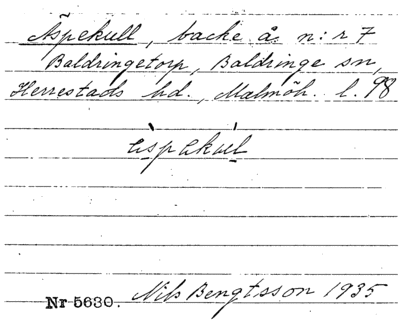 Äspekull, backe å n:r 7
Baldringetorp, Baldringe sn,
Herrestads hd., Malmöh. l. 98
Nr 5630. Nils Bengtsson 1935